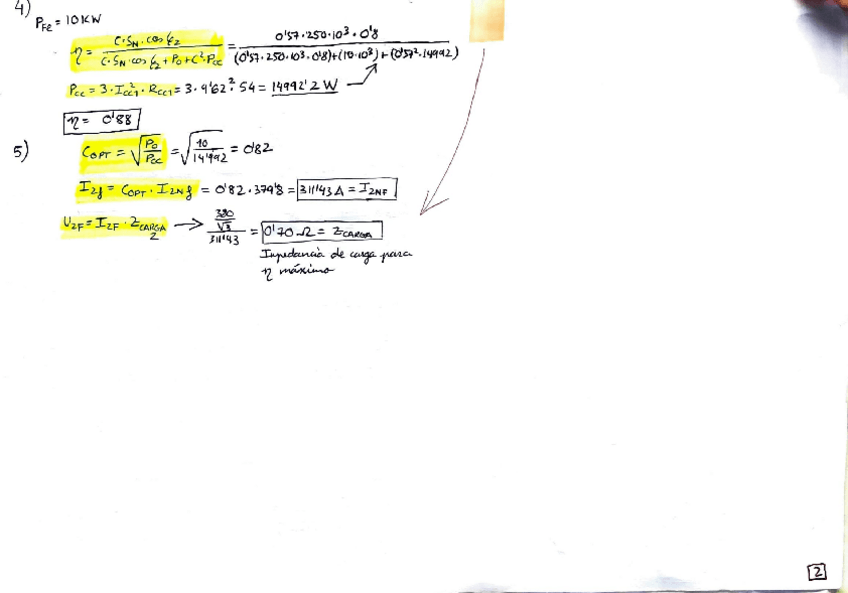 4)
P_Fe = 10 KW
η = C·S_N·cos φ_2 / (C·S_N·cos φ_2 + P_0 + C²·P_CC) = 0'57·250·10³·0'8 / ((0'57·250·10³·0'8)+(10·10³)+(0'57²·14992))
P_CC = 3·I_CC1²·R_CC1 = 3·9'62²·54 = 14992'2 W
η = 0'88
5)
C_OPT = √(P_0/P_CC) = √(10/14'992) = 0'82
I_2f = C_OPT·I_2Nf = 0'82·379'8 = 311'43 A = I_2NF
U_2F = I_2F·Z_CARGA 2 → (380/√3)/311'43 = 0'70 Ω = Z_CARGA
Impedancia de carga para
η máximo
2